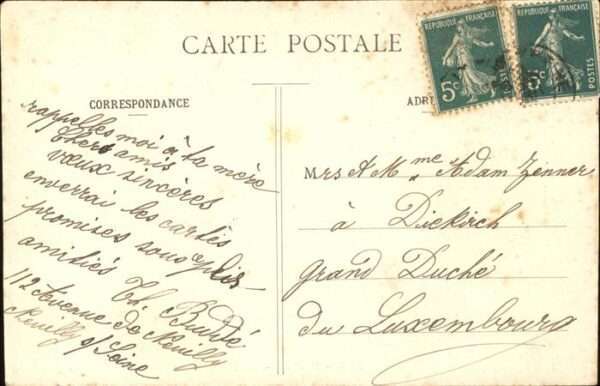 CARTE POSTALE
REPUBLIQUE FRANÇAISE
5c
POSTES
REPUBLIQUE FRANÇAISE
5c
POSTES
CORRESPONDANCE
rappelles moi à ta mère
Chers amis
vœux sincères
enverrai les cartes
promises sous plis
amitiés Th.
112 Avenue de Neuilly
Neuilly s/ Seine
ADR
Mrs & Mme Adam Zenner
à Diekirch
Grand Duché
du Luxembourg